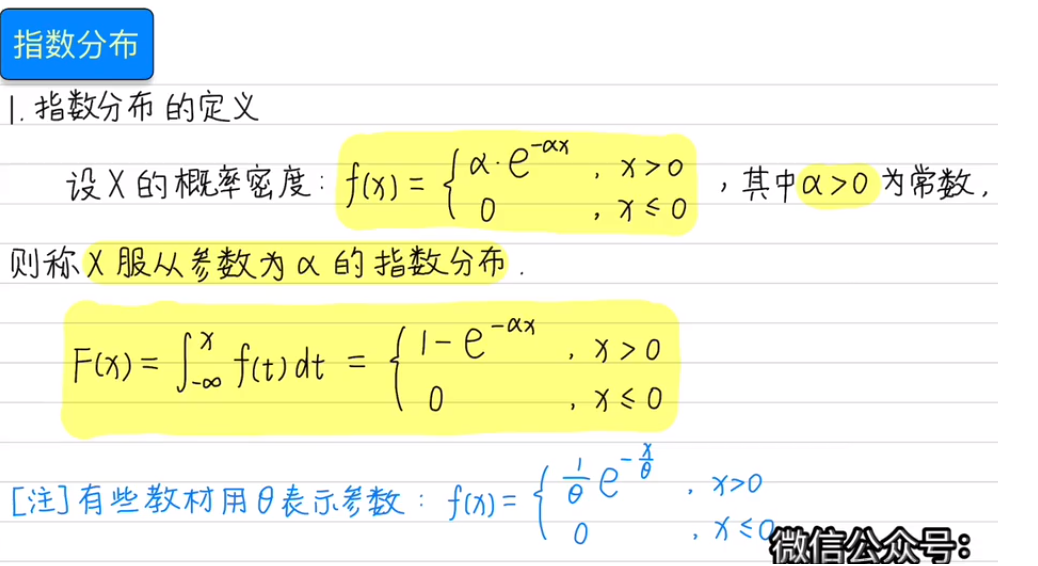 指数分布
1. 指数分布的定义
设X的概率密度: f(x) = { α·e^{-αx}, x>0 ; 0, x≤0 , 其中α>0为常数,
则称X服从参数为α的指数分布.
F(x) = ∫_{-∞}^{x} f(t)dt = { 1-e^{-αx}, x>0 ; 0, x≤0
[注]有些教材用θ表示参数: f(x) = { \frac{1}{θ}e^{-\frac{x}{θ}}, x>0 ; 0, x≤0
微信公众号: